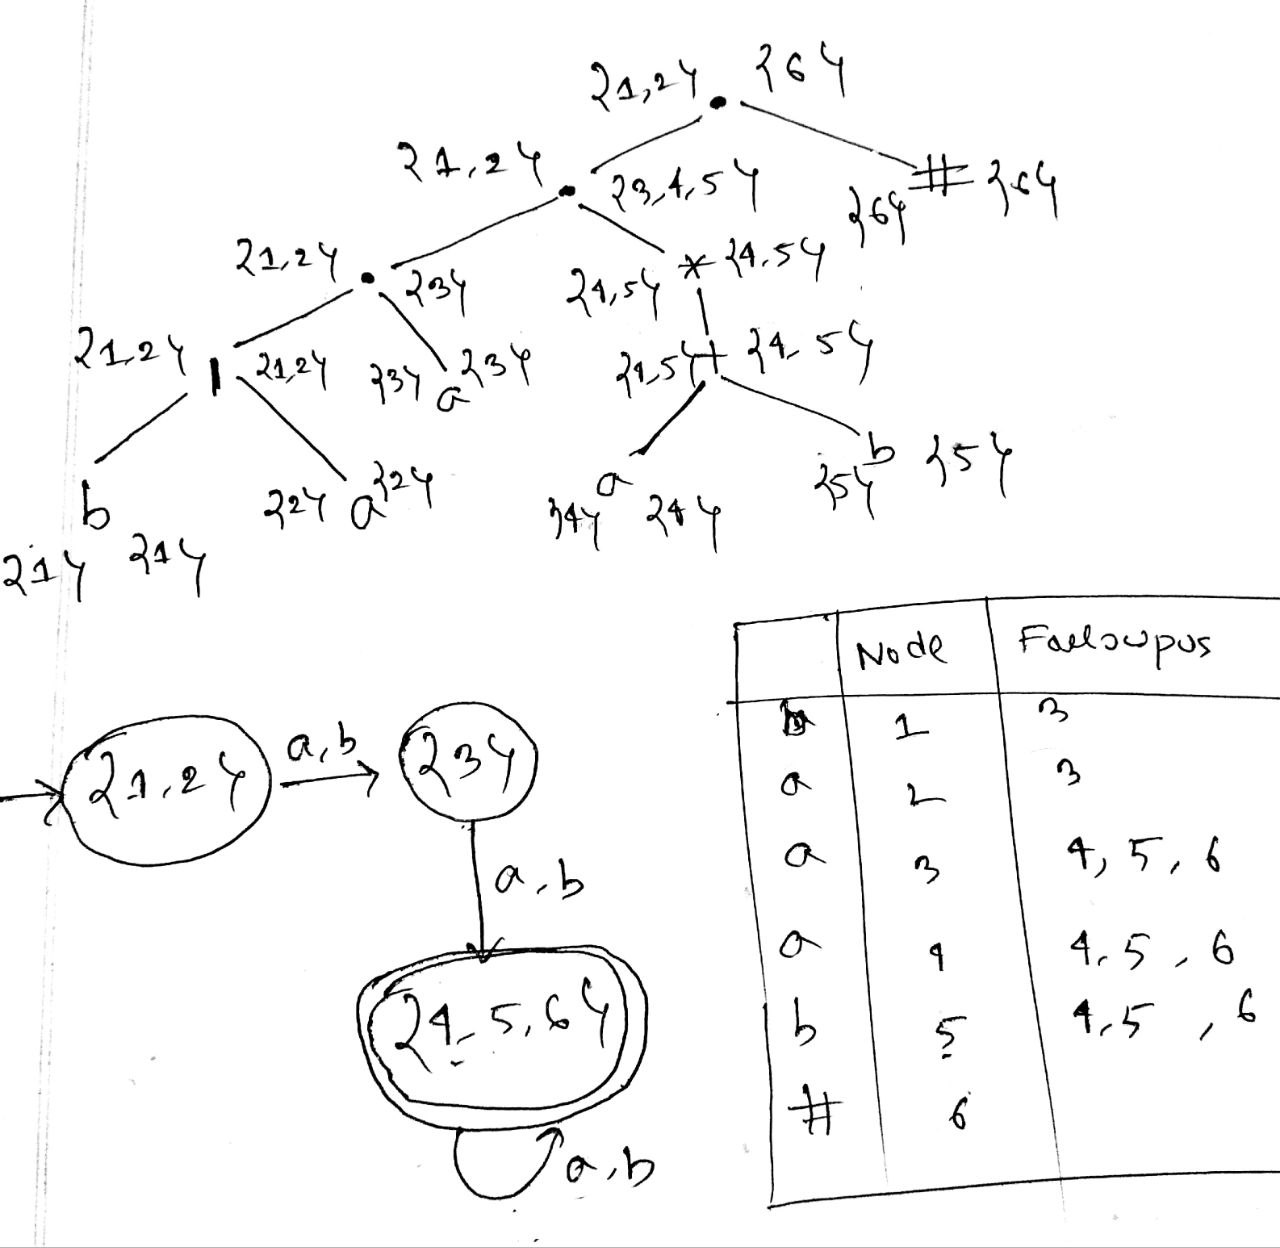 {1,2} {6}
{1,2} • {3,4,5} {6} # {6}
{1,2} • {3} {4,5} * {4,5}
{1,2} | {1,2} {3} a {3} {4,5} + {4,5}
b {2} a {2} a {5} b {5}
{1} {1} {4} {4}
Node Fallowpus
b 1 3
a 2 3
a 3 4, 5, 6
a 4 4, 5, 6
b 5 4, 5, 6
# 6
{1,2} a,b {3}
a,b
{4,5,6}
a,b